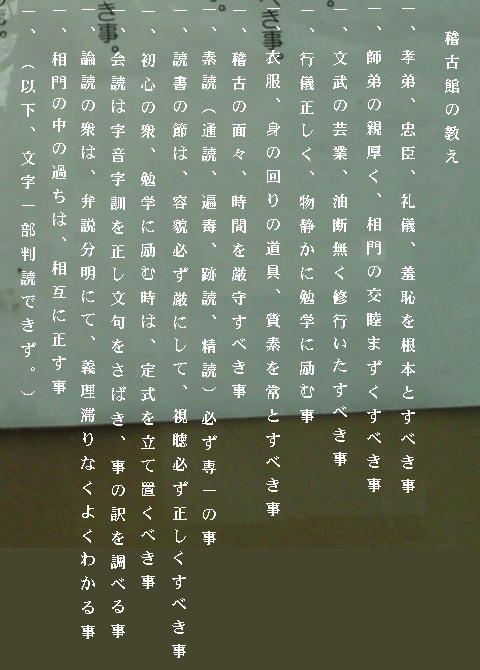 稽古館の教え
一、孝弟、忠臣、礼儀、羞恥を根本とすべき事
一、師弟の親厚く、相門の交睦まずくすべき事
一、文武の芸業、油断無く修行いたすべき事
一、行儀正しく、物静かに勉学に励む事
一、衣服、身の回りの道具、質素を常とすべき事
一、稽古の面々、時間を厳守すべき事
一、素読（通読、遍毒、跡読、精読）必ず専一の事
一、読書の節は、容貌必ず厳にして、視聴必ず正しくすべき事
一、初心の衆、勉学に励む時は、定式を立て置くべき事
一、会読は字音字訓を正し文句をさばき、事の訳を調べる事
一、論読の衆は、弁説分明にて、義理滞りなくよくわかる事
一、相門の中の過ちは、相互に正す事
一、（以下、文字一部判読できず。）
き事。
き事。